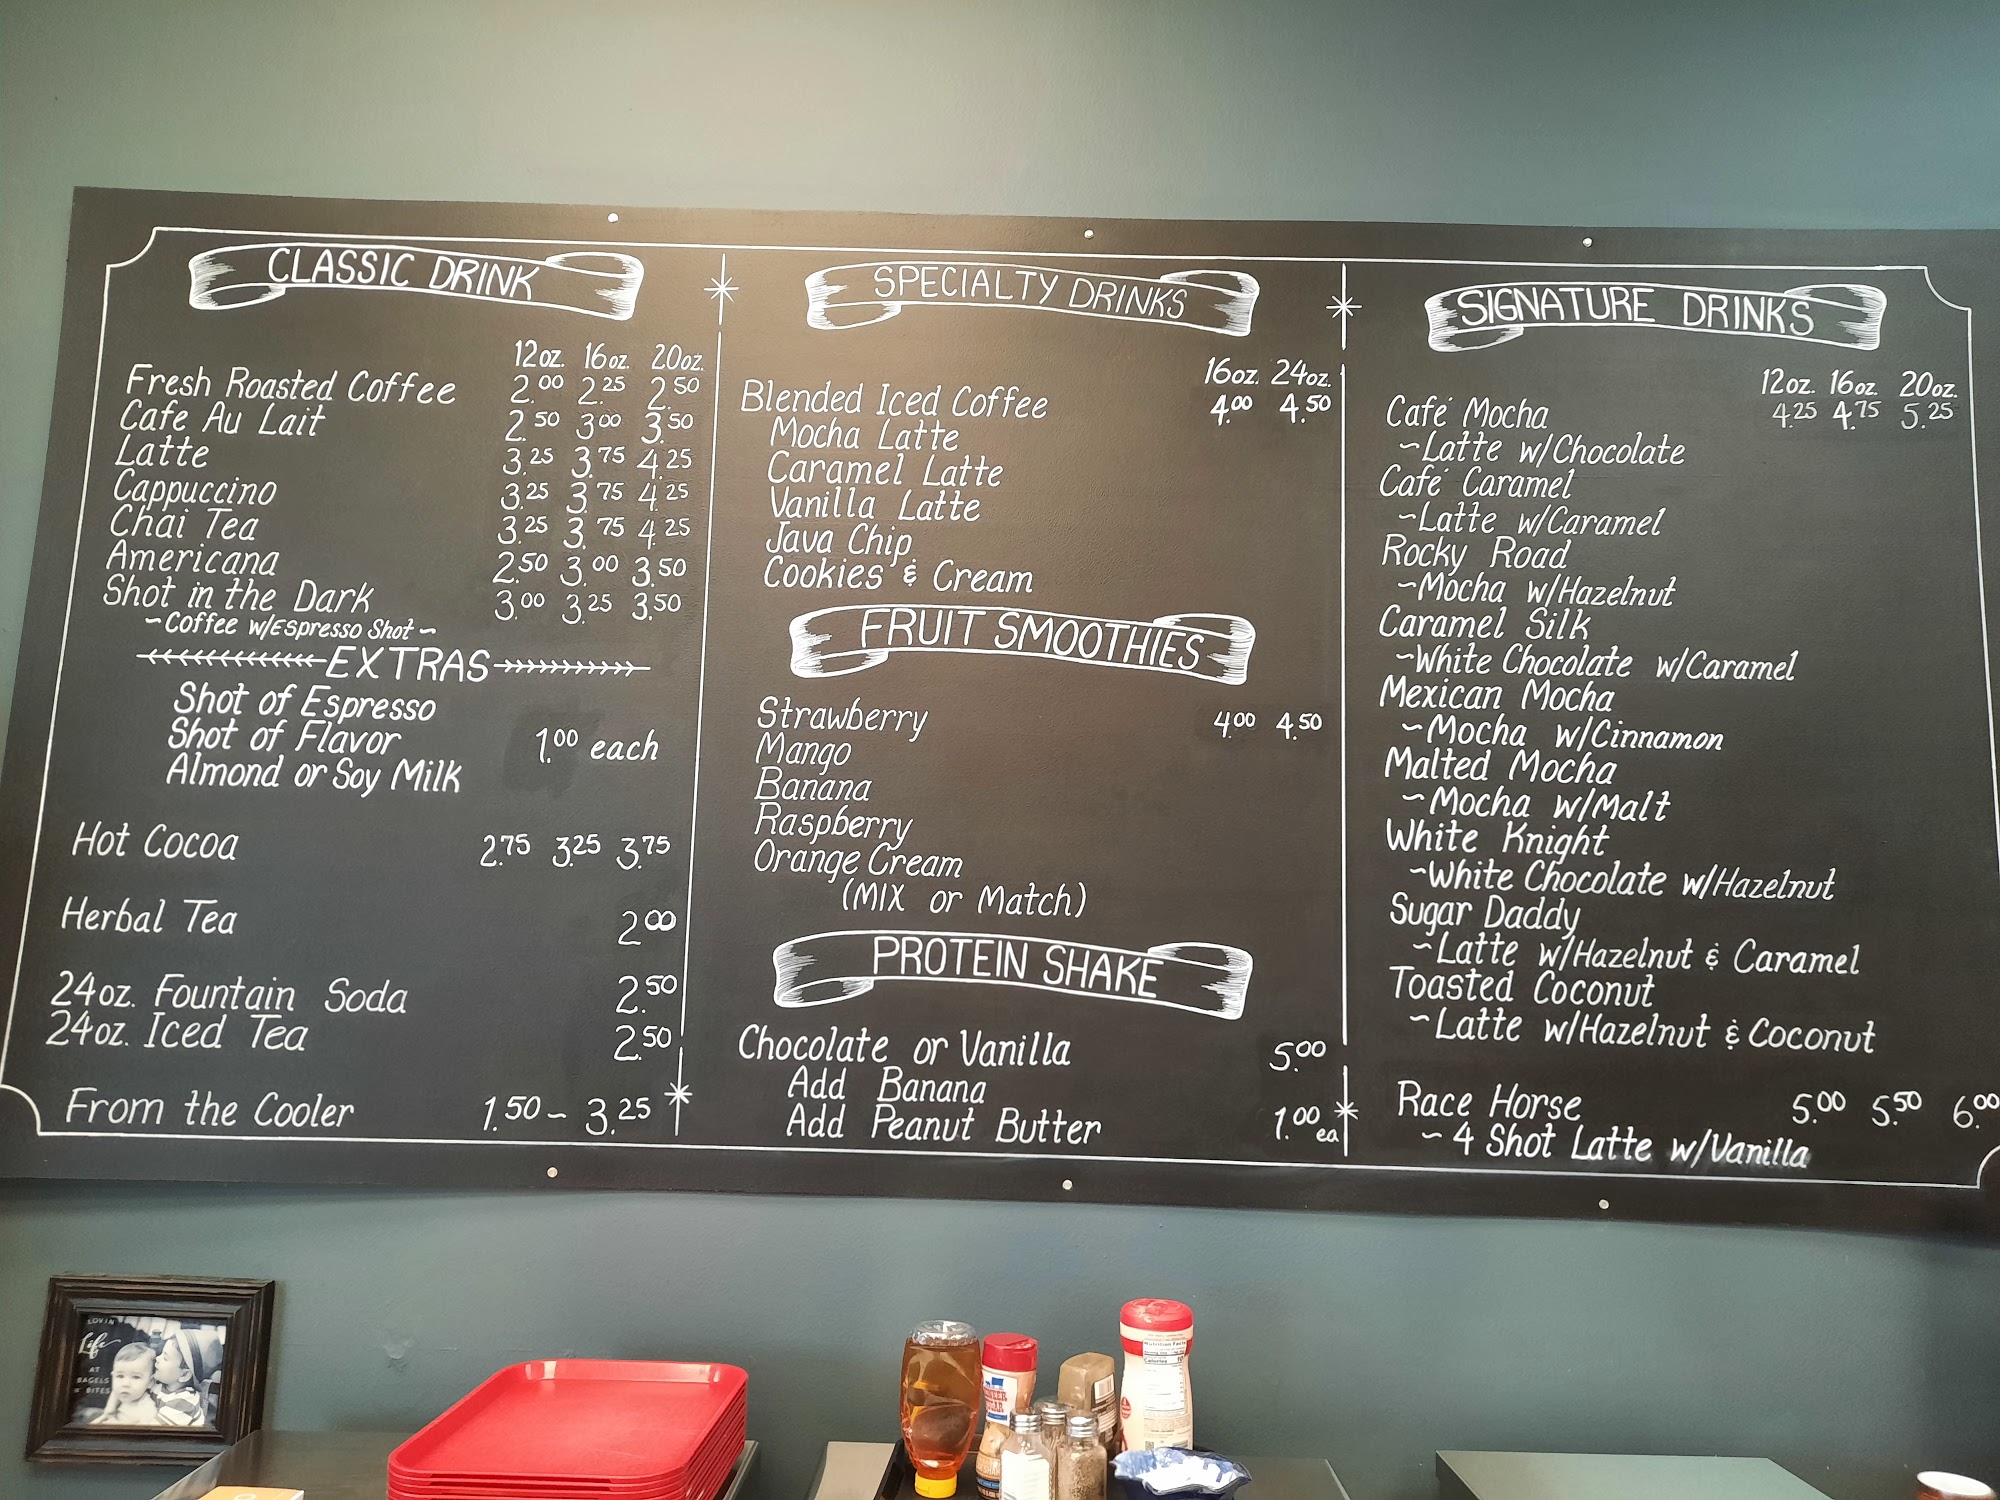 CLASSIC DRINK
12oz. 16oz. 20oz.
Fresh Roasted Coffee 2.00 2.25 2.50
Cafe Au Lait 2.50 3.00 3.50
Latte 3.25 3.75 4.25
Cappuccino 3.25 3.75 4.25
Chai Tea 3.25 3.75 4.25
Americana 2.50 3.00 3.50
Shot in the Dark 3.00 3.25 3.50
~Coffee w/Espresso Shot~
EXTRAS
Shot of Espresso
Shot of Flavor 1.00 each
Almond or Soy Milk
Hot Cocoa 2.75 3.25 3.75
Herbal Tea 2.00
24oz. Fountain Soda 2.50
24oz. Iced Tea 2.50
From the Cooler 1.50 – 3.25
SPECIALTY DRINKS
16oz. 24oz.
Blended Iced Coffee 4.00 4.50
Mocha Latte
Caramel Latte
Vanilla Latte
Java Chip
Cookies & Cream
FRUIT SMOOTHIES
Strawberry 4.00 4.50
Mango
Banana
Raspberry
Orange Cream
(MIX or Match)
PROTEIN SHAKE
Chocolate or Vanilla 5.00
Add Banana
Add Peanut Butter 1.00 ea
SIGNATURE DRINKS
12oz. 16oz. 20oz.
Café Mocha 4.25 4.75 5.25
~Latte w/Chocolate
Café Caramel
~Latte w/Caramel
Rocky Road
~Mocha w/Hazelnut
Caramel Silk
~White Chocolate w/Caramel
Mexican Mocha
~Mocha w/Cinnamon
Malted Mocha
~Mocha w/Malt
White Knight
~White Chocolate w/Hazelnut
Sugar Daddy
~Latte w/Hazelnut & Caramel
Toasted Coconut
~Latte w/Hazelnut & Coconut
Race Horse 5.00 5.50 6.00
~4 Shot Latte w/Vanilla
LOVIN
Life
AT
BAGELS
n' BITES
Nutrition Facts
Calories 10